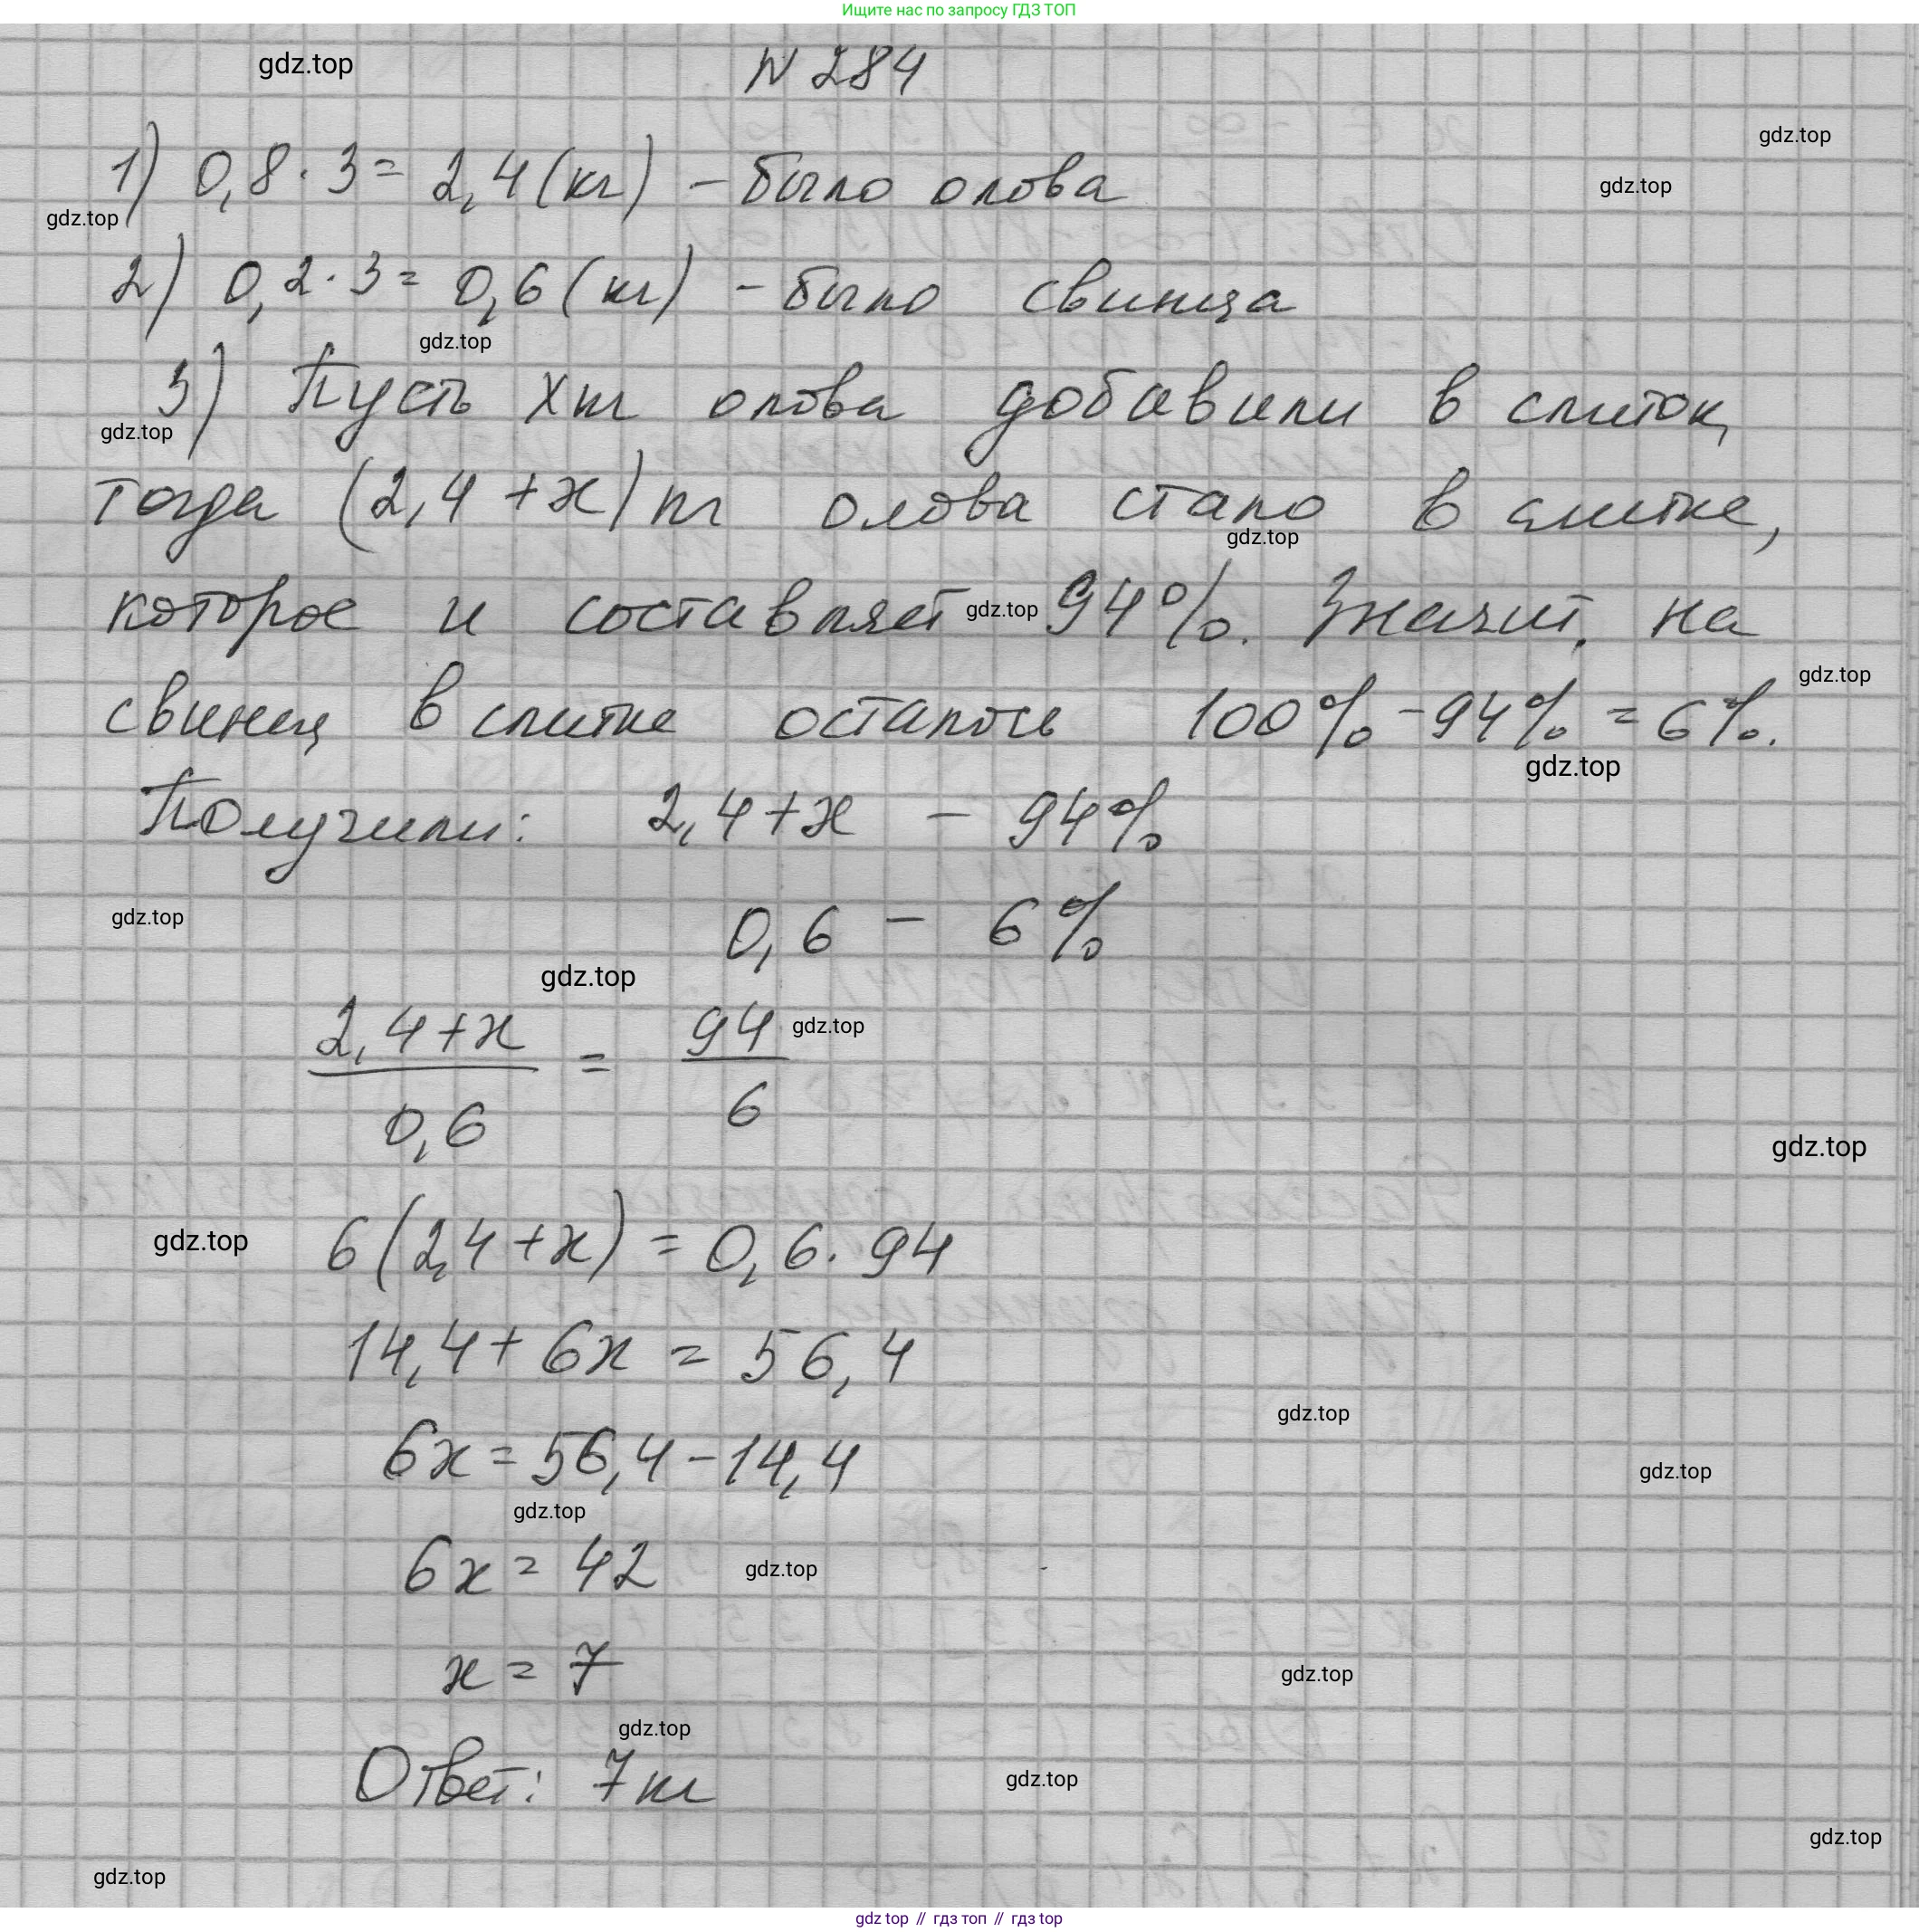 Ищите нас по запросу ГДЗ ТОП
gdz.top
N 284
gdz.top
1) 0,8 · 3 = 2,4 (кг) - было олова
gdz.top
gdz.top
2) 0,2 · 3 = 0,6 (кг) - было свинца
gdz.top
3) Пусть х кг олова добавили в слиток,
gdz.top
тогда (2,4 + х) кг олова стало в слитке,
gdz.top
которое и составляет 94%. Значит, на
gdz.top
свинец в слитке осталось 100% - 94% = 6%.
gdz.top
gdz.top
Получили: 2,4 + х - 94%
0,6 - 6%
gdz.top
gdz.top
2,4 + х / 0,6 = 94 / 6
gdz.top
gdz.top
6(2,4 + х) = 0,6 · 94
gdz.top
14,4 + 6х = 56,4
gdz.top
6х = 56,4 - 14,4
gdz.top
gdz.top
6х = 42
gdz.top
х = 7
gdz.top
gdz.top
Ответ: 7 кг
gdz.top
gdz.top
gdz.top
gdz top // гдз топ // гдз top